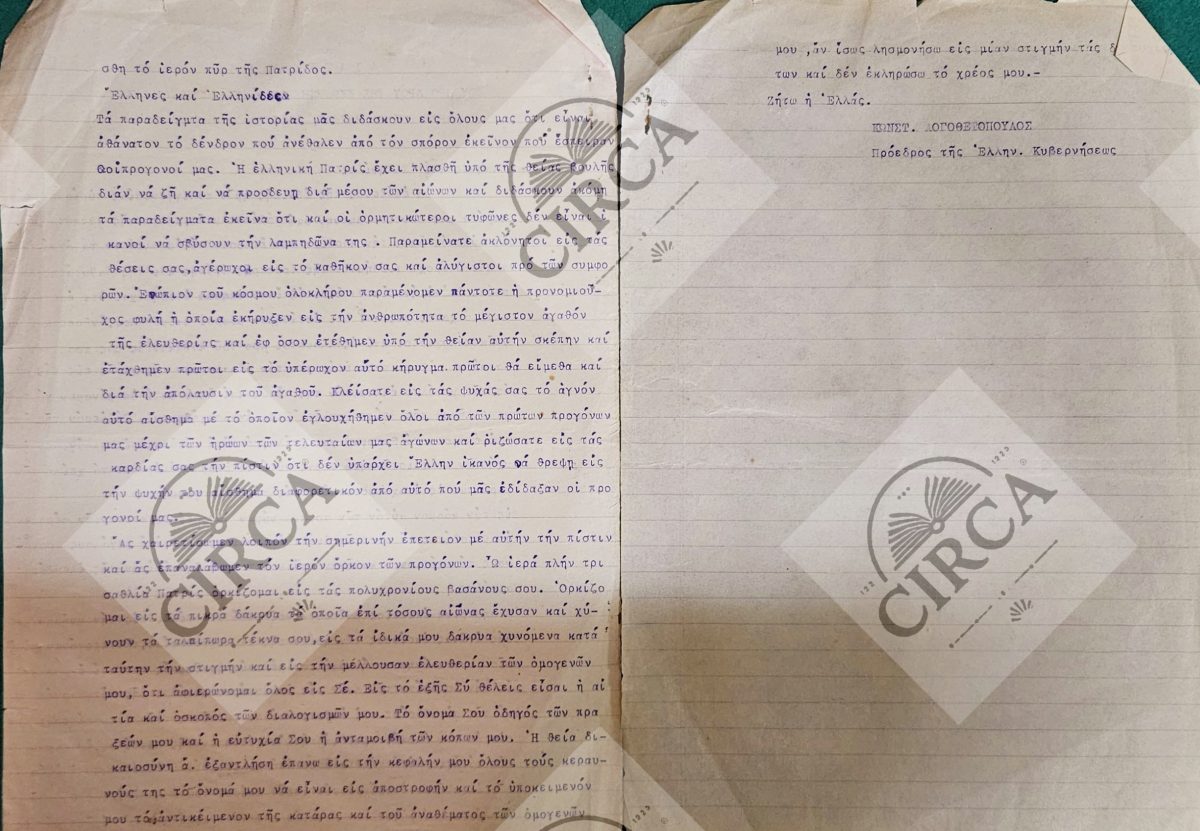 σθη τό ἱερόν πῦρ τῆς Πατρίδος.
Ἕλληνες καί Ἑλληνίδες
Τά παραδείγμτα τῆς ἱστορίας μᾶς διδάσκουν εἰς ὅλους μας ὅτι εἶναι
ἀθάνατον τό δένδρον πού ἀνέθαλεν ἀπό τόν σπόρον ἐκεῖνον πού ἔσπειραν
θοἱπρογονοί μας. Ἡ ἑλληνική Πατρίς ἔχει πλασθῆ ὑπό τῆς θείας βουλῆς
διάν νά ζῆ καί νά προοδευη διά μέσου τῶν αἰώνων καί διδάσκουν ἀκόμη
τά παραδείγματα ἐκεῖνα ὅτι καί οἱ ὁρμητικώτεροι τυφῶνες δέν εἶναι ἱ
κανοί νά σβύσουν τήν λαμπηδῶνα της . Παραμείνατε ἀκλόνητοι εἰς τάς
θέσεις σας,ἀγέρωχοι εἰς τό καθῆκον σας καί ἀλύγιστοι πρό τῶν συμφο
ρῶν. Ἐνώπιον τοῦ κόσμου ὁλοκλήρου παραμένομεν πάντοτε ἡ προνομιοῦ-
χος φυλή ἡ ὁποία ἐκήρυξεν εἰς τήν ἀνθρωπότητα τό μέγιστον ἀγαθόν
τῆς ἐλευθερίας καί ἐφ ὅσον ἐτέθημεν ὑπό τήν θείαν αὐτήν σκέπην καί
ἐτάχθημεν πρῶτοι εἰς τό ὑπέρωχον αὐτό κήρυγμα πρῶτοι θά εἴμεθα καί
διά τήν ἀπόλαυσιν τοῦ ἀγαθοῦ. Κλείσατε εἰς τάς ψυχάς σας τό ἁγνόν
αὐτό αἴσθημα μέ τό ὁποῖον ἐγλουχήθημεν ὅλοι ἀπό τῶν πρώτων προγόνων
μας μέχρι τῶν ἡρώων τῶν τελευταίων μας ἀγώνων καί ριζώσατε εἰς τάς
καρδίας σας τήν πίστιν ὅτι δέν ὑπάρχει Ἕλλην ἱκανός νά θρεψη εἰς
τήν ψυχήν του αἴσθημα διαφορετικόν ἀπό αὐτό πού μᾶς ἐδίδαξαν οἱ προ
γονοί μας.
Ἄς χαιρετίσωμεν λοιπόν τήν σημερινήν ἐπετειον μέ αὐτήν τήν πίστιν
καί ἄς ἐπαναλάβωμεν τόν ἱερόν ὅρκον τῶν προγόνων. Ὦ ἱερά πλήν τρι
σαθλία Πατρίς ὁρκίζομαι εἰς τάς πολυχρονίους βασάνους σου. Ὁρκίζο
μαι εἰς τά πικρά δάκρυα τά ὁποῖα ἐπί τόσους αἰῶνας ἔχυσαν καί χύ-
νουν τά ταλαίπωρα τέκνα σου,εἰς τά ἰδικά μου δάκρυα χυνόμενα κατά
ταύτην τήν στιγμήν καί εἰς τήν μέλλουσαν ἐλευθερίαν τῶν ὁμογενῶν
μου, ὅτι ἀφιερώνομαι ὅλος εἰς Σέ. Εἰς τό ἑξῆς Σύ θέλεις εἶσαι ἡ αἰ
τία καί ὁσκοπός τῶν διαλογισμῶν μου. Τό ὄνομα Σου ὁδηγός τῶν πρα
ξεών μου καί ἡ εὐτυχία Σου ἡ ἀνταμοιβή τῶν κόπων μου. Ἡ θεία δι-
καιοσύνη ἄ. ἐξαντλήση ἐπάνω εἰς τήν κεφαλήν μου ὅλους τούς κεραυ-
νούς της τό ὄνομά μου νά εἶναι εἰς ἀποστροφήν καί τό ὑποκειμενόν
μου τό ἀντικείμενον τῆς κατάρας καί τοῦ ἀναθέματος τῶν ὁμογενῶν
μου ,ἄν ἴσως λησμονήσω εἰς μίαν στιγμήν τάς δ
των καί δέν ἐκληρώσω τό χρέος μου.-
Ζήτω ἡ Ἑλλάς.
ΚΩΝΣΤ. ΛΟΓΟΘΕΤΟΠΟΥΛΟΣ
Πρόεδρος τῆς Ἑλλην. Κυβερνήσεως
CIRCA
CIRCA
CIRCA